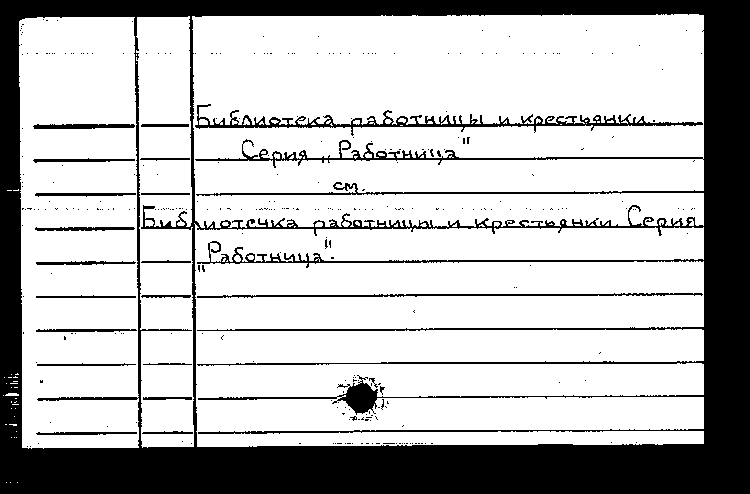 Библиотека работницы и крестьянки.
Серия „Работница"
см.
Библиотечка работницы и крестьянки. Серия
„Работница".